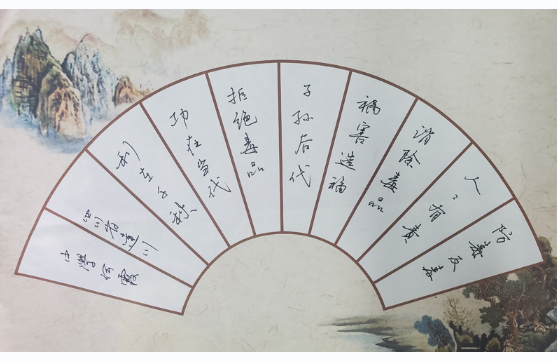 防毒反毒
人人有责
消除毒品
祸害造福
子孙后代
拒绝毒品
功在当代
利在千秋